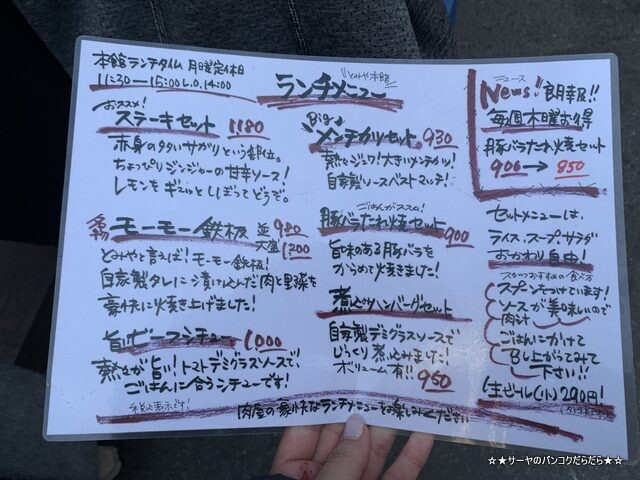 本館ランチタイム 月曜定休日
11:30―15:00 L.O.14:00
とみや本館
ランチメニュー
おススメ!
ステーキセット 1180
赤身のタタいサガリという部位。
ちょっぴりジンジャーの甘辛ソース!
レモンをギュッとしぼってどうぞ。
名物 モーモー鉄板 並980
大盛1300
とみやと言えば!モーモー鉄板!
自家製タレに漬け込んだ肉と野菜を
豪快に焼き上げました!
旨ビーフシチュー 1000
熱々が旨い!トマトデミグラスソースで、
ごはんに合うシチューです!
税込表示です!
Big メンチカツセット 930
熱々ジュワ!大きいメンチカツ!
自家製ソースベストマッチ!
ごはんがススム!
豚バラたれ焼セット 900
旨味のある豚バラを
からめて焼きました!
煮込みハンバーグセット
自家製デミグラスソースで
じっくり煮込みました!
ボリューム有!! 950
肉屋の豪快なランチメニューをお楽しみください
ニュース
News! 朗報!!
毎週木曜お得
豚バラたれ焼セット
900→850
セットメニューは、
ライス、スープ、サラダ
おかわり自由!
スタッフおすすめの食べ方
スプーンもつけています!
ソースが美味しいので
肉と汁
ごはんにかけて
召し上がってみて
下さい!!
生ビール(小)290円!
☆★サーヤのバンコクだらだら★☆